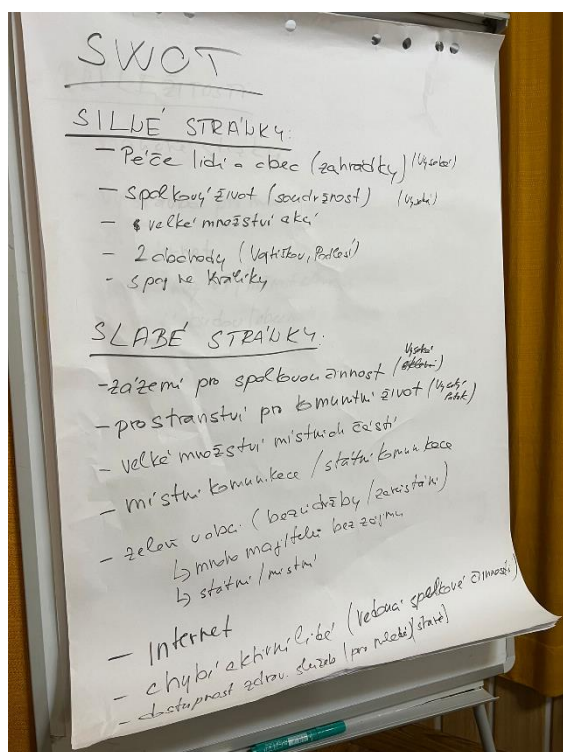 SWOT
SILNÉ STRÁNKY:
- Péče lidí o obec (zahrádky) (Vysoká)
- spolkový život (soudržnost) (Vysoká)
- velké množství akcí
- 2 obchody (Vojtíškov, Podlesí)
- spoj na Králíky
SLABÉ STRÁNKY:
- zázemí pro spolkovou činnost (Vysoká)
- prostranství pro komunitní život (Vysoký Potok)
- velké množství místních částí
- místní komunikace / státní komunikace
- zeleň v obci (bez údržby / zarůstání)
↳ mnoho majitelů bez zájmu
↳ státní / místní
- Internet
- chybí aktivní lidé (vedoucí spolkové činnosti)
- dostupnost zdrav. služeb (pro mladé / staré)